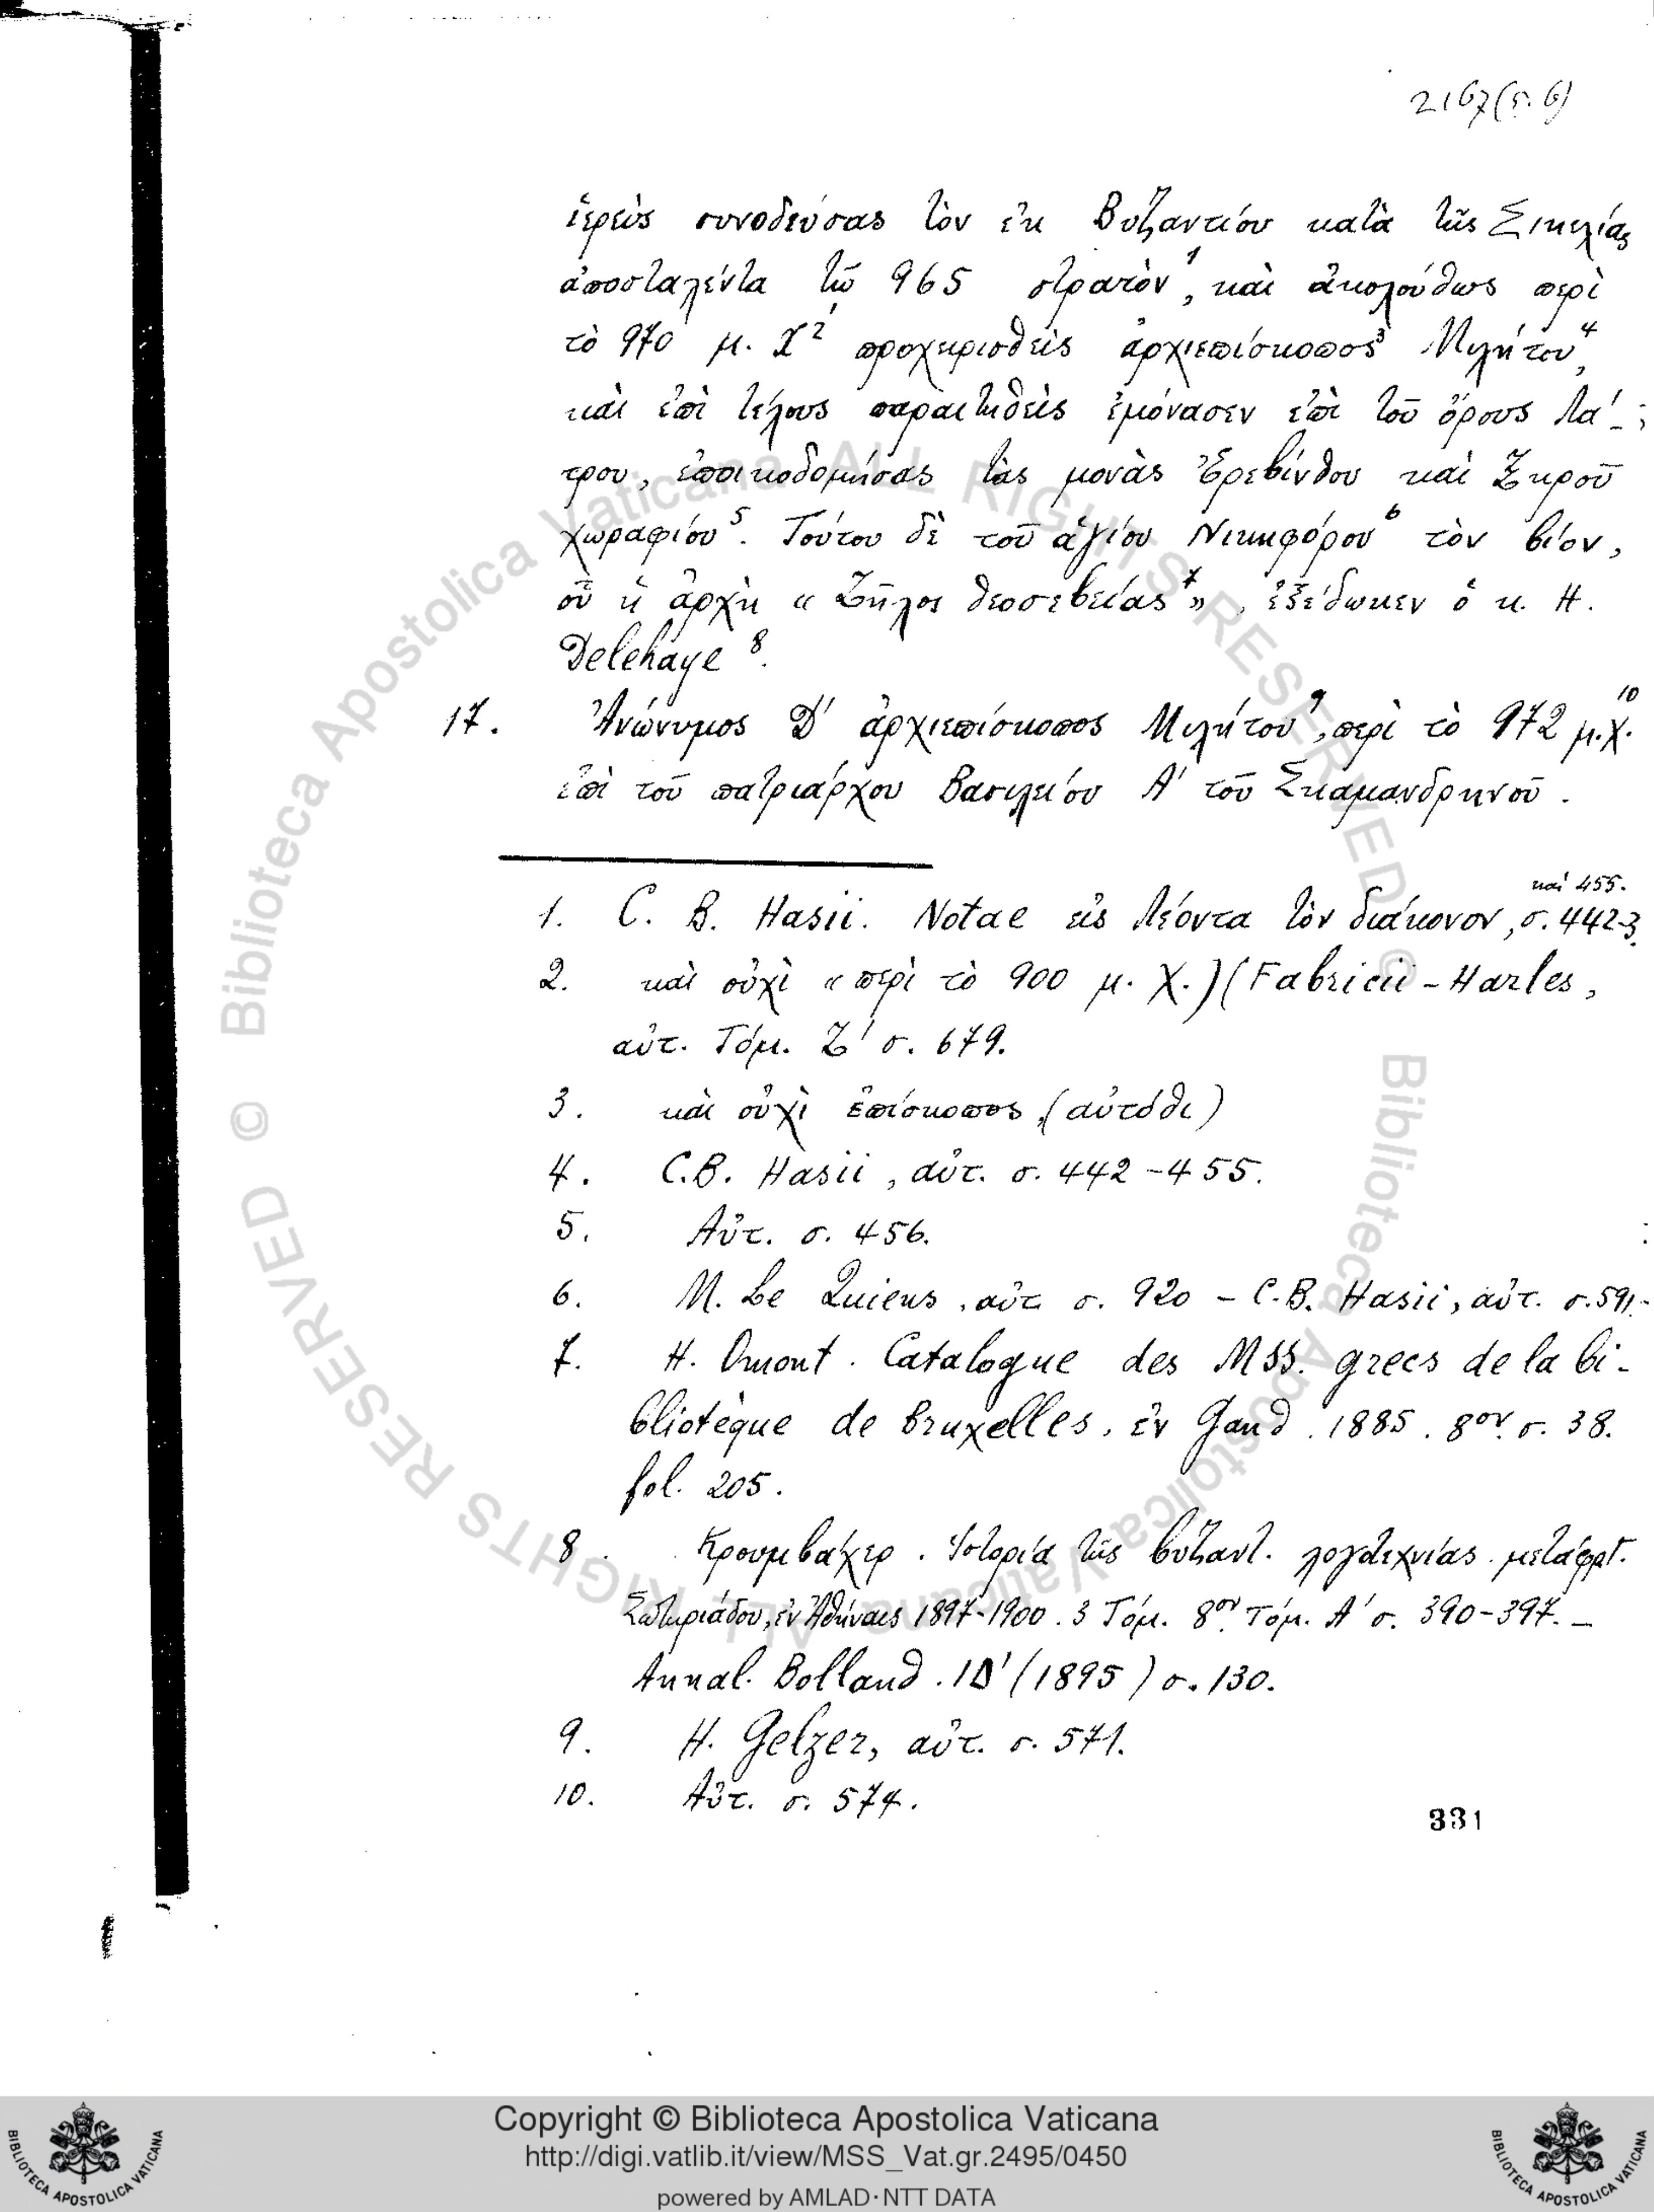 2167 (ς. 6)
ἱερεὺς συνοδεύσας τὸν ἐκ Βυζαντίου κατὰ τῆς Σικελίας
ἀποσταλέντα τῷ 965 στρατὸν¹, καὶ ἀκολούθως περὶ
τὸ 970 μ. Χ² προχειρισθεὶς ἀρχιεπίσκοπος³ Μιλήτου⁴,
καὶ ἐπὶ τέλους παραιτηθεὶς ἐμόνασεν ἐπὶ τοῦ ὄρους Λά-
τρου, ἐποικοδομήσας τὰς μονὰς Ἐρεβίνθου καὶ Ξηροῦ
χωραφίου⁵. Τούτου δὲ τοῦ ἁγίου Νικηφόρου⁶ τὸν βίον,
οὗ ἡ ἀρχὴ « Ζῆλος θεοσεβείας⁷» , ἐξέδωκεν ὁ κ. H.
Delehaye ⁸.
17. Ἀνώνυμος Δ' ἀρχιεπίσκοπος Μιλήτου⁹, περὶ τὸ 972 μ.Χ.¹⁰
ἐπὶ τοῦ πατριάρχου Βασιλείου Α' τοῦ Σκαμανδρηνοῦ .
καὶ 455.
1. C. B. Hasii. Notae εἰς Λέοντα τὸν διάκονον, σ. 442-3.
2. καὶ οὐχὶ « περὶ τὸ 900 μ. Χ.) (Fabricii - Harles,
αὐτ. Τόμ. Ζ' σ. 679.
3. καὶ οὐχὶ ἐπίσκοπος, (αὐτόθι)
4. C.B. Hasii, αὐτ. σ. 442-455.
5. Αὐτ. σ. 456.
6. M. Le Quiens, αὐτ. σ. 920 - C.B. Hasii, αὐτ. σ. 591.-
7. H. Omont. Catalogue des MSS. grecs de la bi-
bliotèque de Bruxelles, ἐν Gand. 1885. 8ον. σ. 38.
fol. 205.
8. Κρουμβάχερ. Ἱστορία τῆς βυζαντ. λογοτεχνίας. μετάφρ.
Σωτηριάδου, ἐν Ἀθήναις 1897-1900. 3 Τόμ. 8ον Τόμ. Α' σ. 390-397. -
Annal. Bolland. ΙΔ' (1895) σ. 130.
9. H. Gelzer, αὐτ. σ. 571.
10. Αὐτ. σ. 574.
331
© Biblioteca Apostolica Vaticana ALL RIGHTS RESERVED © Biblioteca Apostolica Vaticana ALL RIGHTS RESERVED
Copyright © Biblioteca Apostolica Vaticana
http://digi.vatlib.it/view/MSS_Vat.gr.2495/0450
powered by AMLAD·NTT DATA
BIBLIOTECA APOSTOLICA VATICANA
BIBLIOTECA APOSTOLICA VATICANA